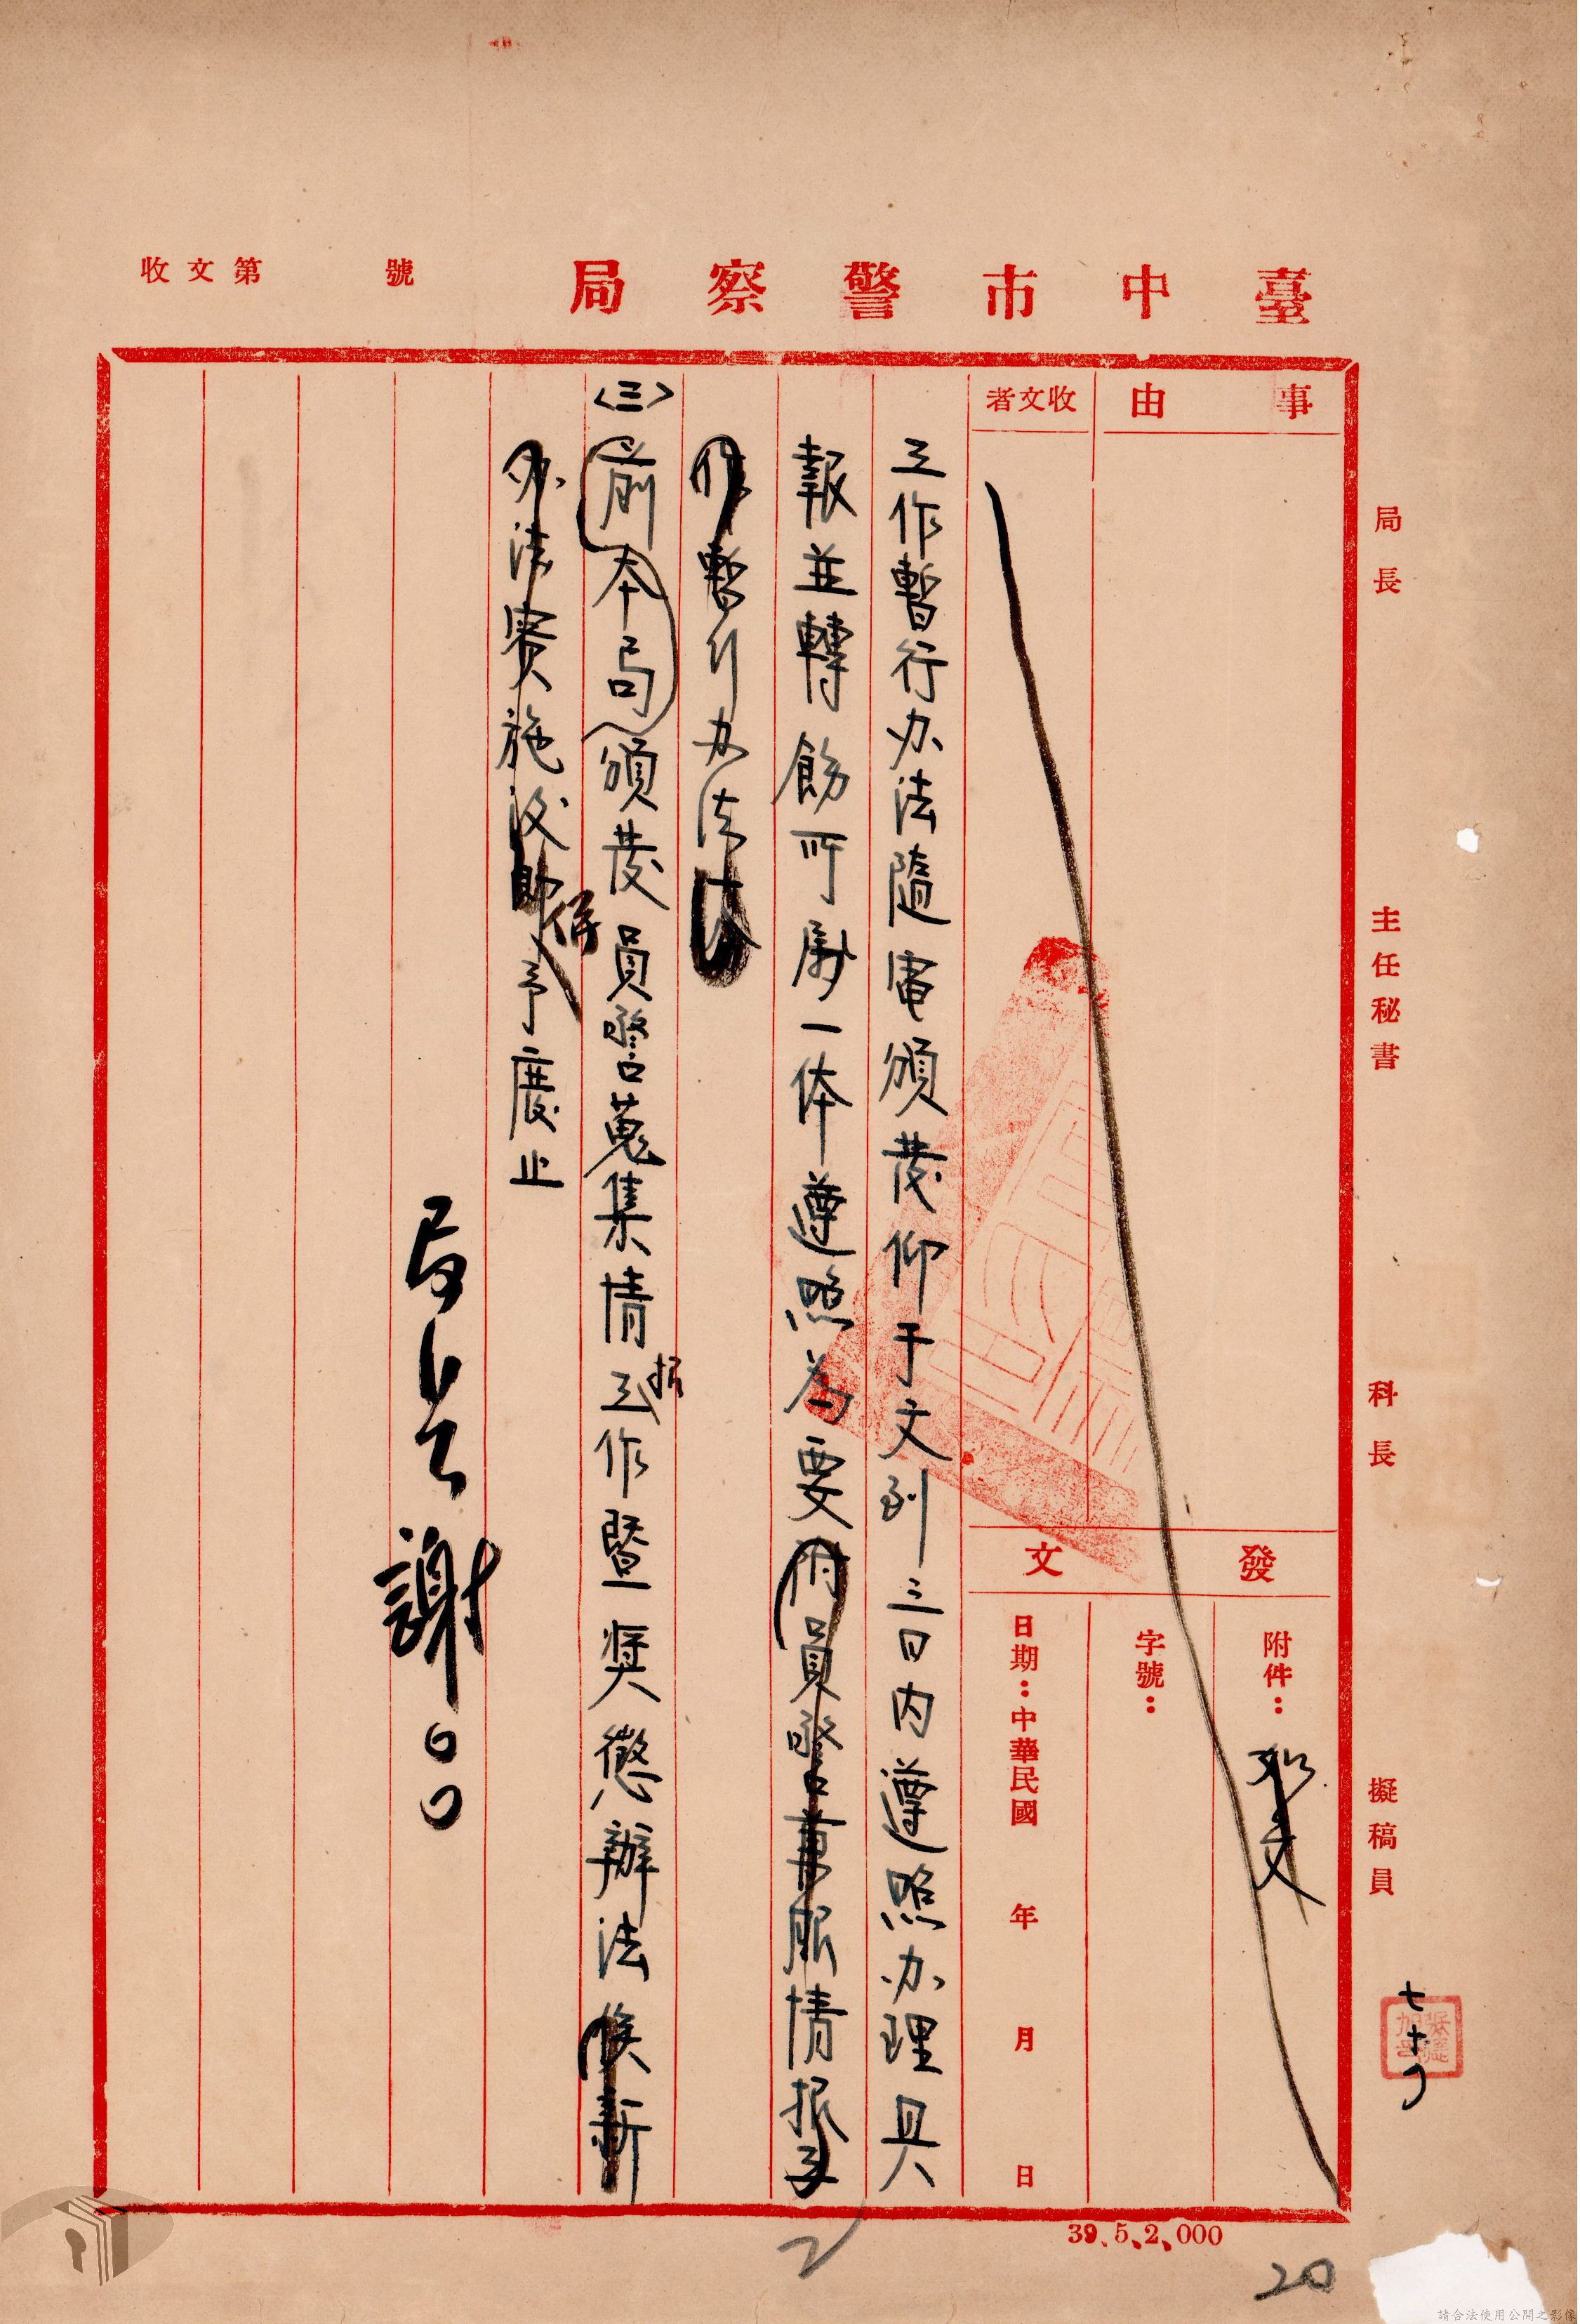 臺中市警察局
收文第 號
事由
收文者
發文
附件：如文
字號：
日期：中華民國 年 月 日
工作暫行办法隨電頒发仰于文到三日内遵照办理具
報並轉飭所屬一体遵照為要附員警兼服情报工
作暫行办法
〈三〉前本局頒发員警蒐集情报工作暨奬懲辦法俟新
办法實施後即併予廢止
局長謝〇〇
局長
主任秘書
科長
擬稿員
七十
39.5.2,000
20
請合法使用公開之影像